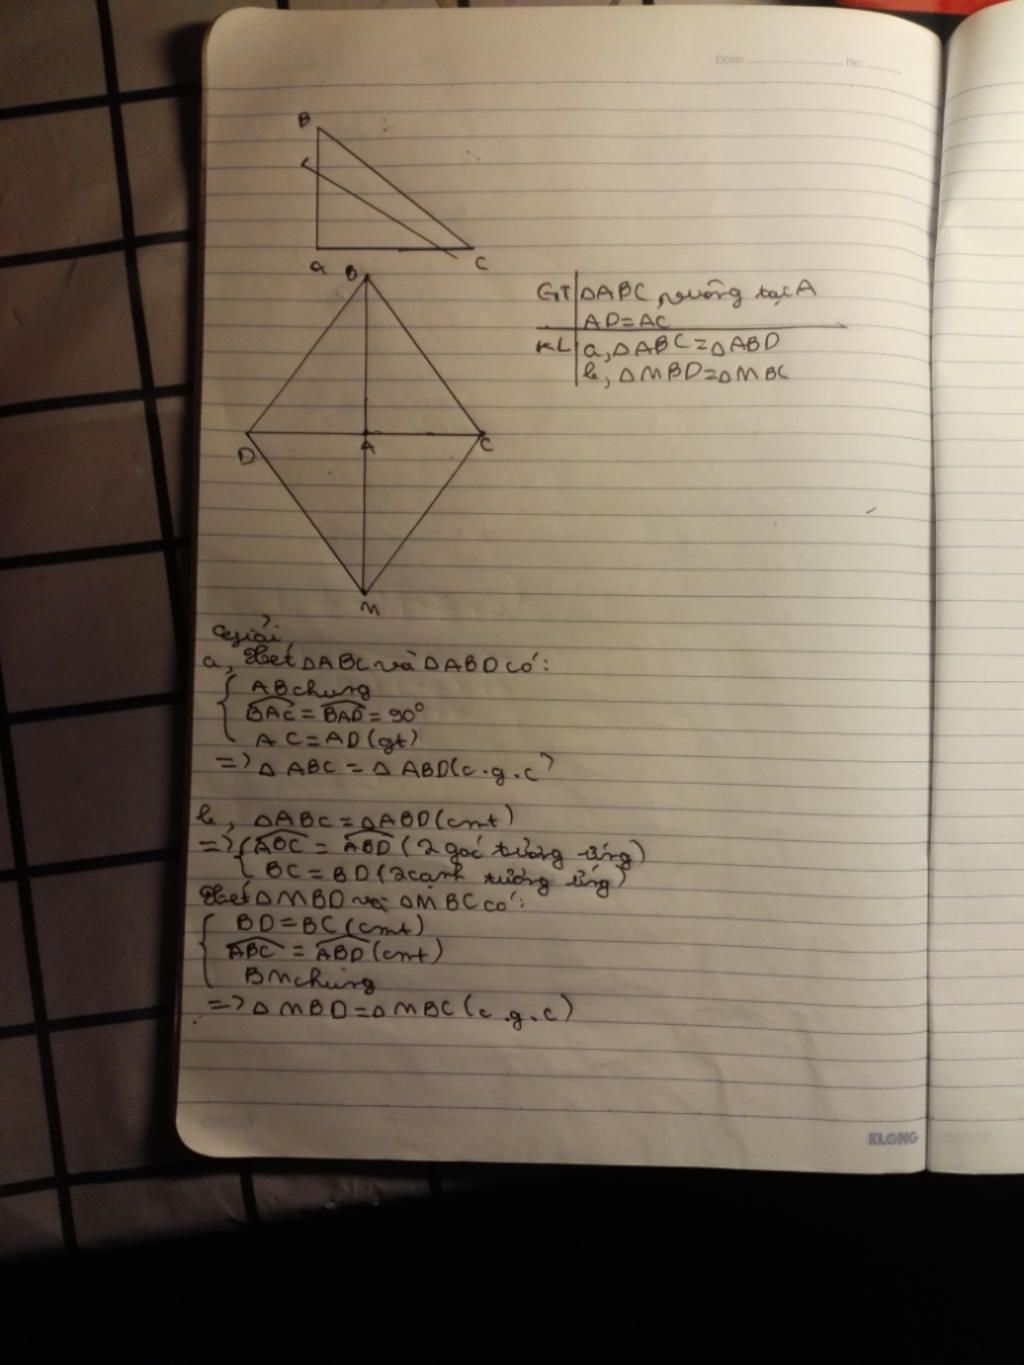 Date: No:
B
a
C
B
D
A
C
M
GT ΔABC vuông tại A
AD=AC
KL a, ΔABC=ΔABD
b, ΔMBD=ΔMBC
Giải
a, Xét ΔABC và ΔABD có:
AB chung
BAC = BAD = 90°
AC=AD(gt)
=> ΔABC = ΔABD(c.g.c)
b, ΔABC=ΔABD(cmt)
=> ABC = ABD (2 góc tương ứng)
BC = BD (2 cạnh tương ứng)
Xét ΔMBD và ΔMBC có:
BD=BC(cmt)
ABC = ABD(cmt)
BM chung
=> ΔMBD=ΔMBC(c.g.c)
KLONG